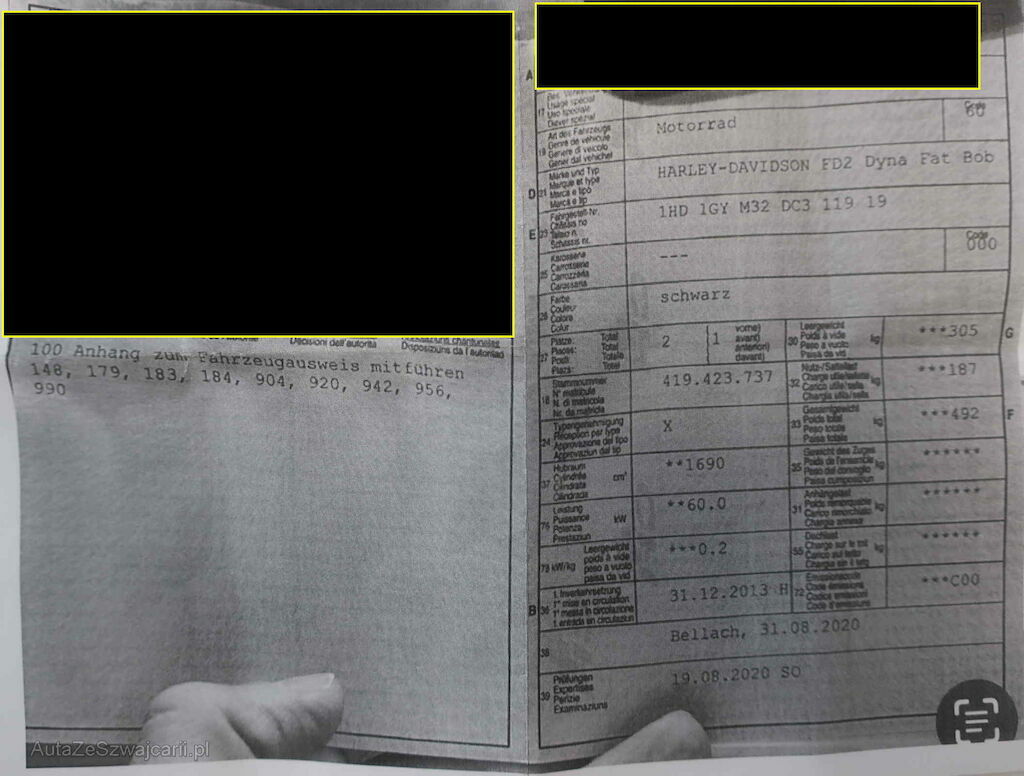 Decisioni dell'autorità
Disposizions da l'autoritad
100 Anhang zum Fahrzeugausweis mitführen
148, 179, 183, 184, 904, 920, 942, 956,
990
A
17 Usage spécial
Uso speciale
Diever spezial
19 Art des Fahrzeugs
Genre de véhicule
Genere di veicolo
Gener dal vehichel
Motorrad
Code
60
D 21 Marke und Typ
Marque et type
Marca e tipo
Marca e tip
HARLEY-DAVIDSON FD2 Dyna Fat Bob
E 23 Fahrgestell-Nr.
Châssis no
Telaio n.
Schassis nr.
1HD 1GY M32 DC3 119 19
25 Karosserie
Carrosserie
Carrozzeria
Carossaria
---
Code
000
26 Farbe
Couleur
Colore
Colur
schwarz
27 Plätze: Total
Places: Total
Posti: Totale
Plazs: Total
2 (1 vorne)
avant)
anteriori)
davant)
30 Leergewicht
Poids à vide
Peso a vuoto
Paisa da vid
kg
***305
G
18 Stammnummer
N° matricule
N. di matricola
Nr. da matricla
419.423.737
32 Nutz-/Sattellast
Charge utile/sellette
Carico utile/sella
Chargia utila/sella
kg
***187
24 Typengenehmigung
Réception par type
Approvazione del tipo
Approvaziun dal tip
X
33 Gesamtgewicht
Poids total
Peso totale
Paisa totala
kg
***492
F
37 Hubraum
Cylindrée
Cilindrata
Cilindrada
cm³
**1690
35 Gewicht des Zuges
Poids de l'ensemble
Peso del convoglio
Paisa cumposiziun
kg
******
76 Leistung
Puissance
Potenza
Prestaziun
kW
**60.0
31 Anhängelast
Poids remorquable
Carico rimorchiato
Chargia annexa
kg
******
78 kW/kg Leergewicht
poids à vide
peso a vuoto
paisa da vid
***0.2
55 Dachlast
Charge sur le toit
Carico sul tetto
Chargia sin il tetg
kg
******
B 36 1. Inverkehrsetzung
1re mise en circulation
1a messa in circolazione
1. entrada en circulaziun
31.12.2013 H
72 Emissionscode
Code émissions
Codice emissioni
Code d'emissiuns
***C00
38
Bellach, 31.08.2020
39 Prüfungen
Expertises
Perizie
Examinaziuns
19.08.2020 SO
AutaZeSzwajcarii.pl